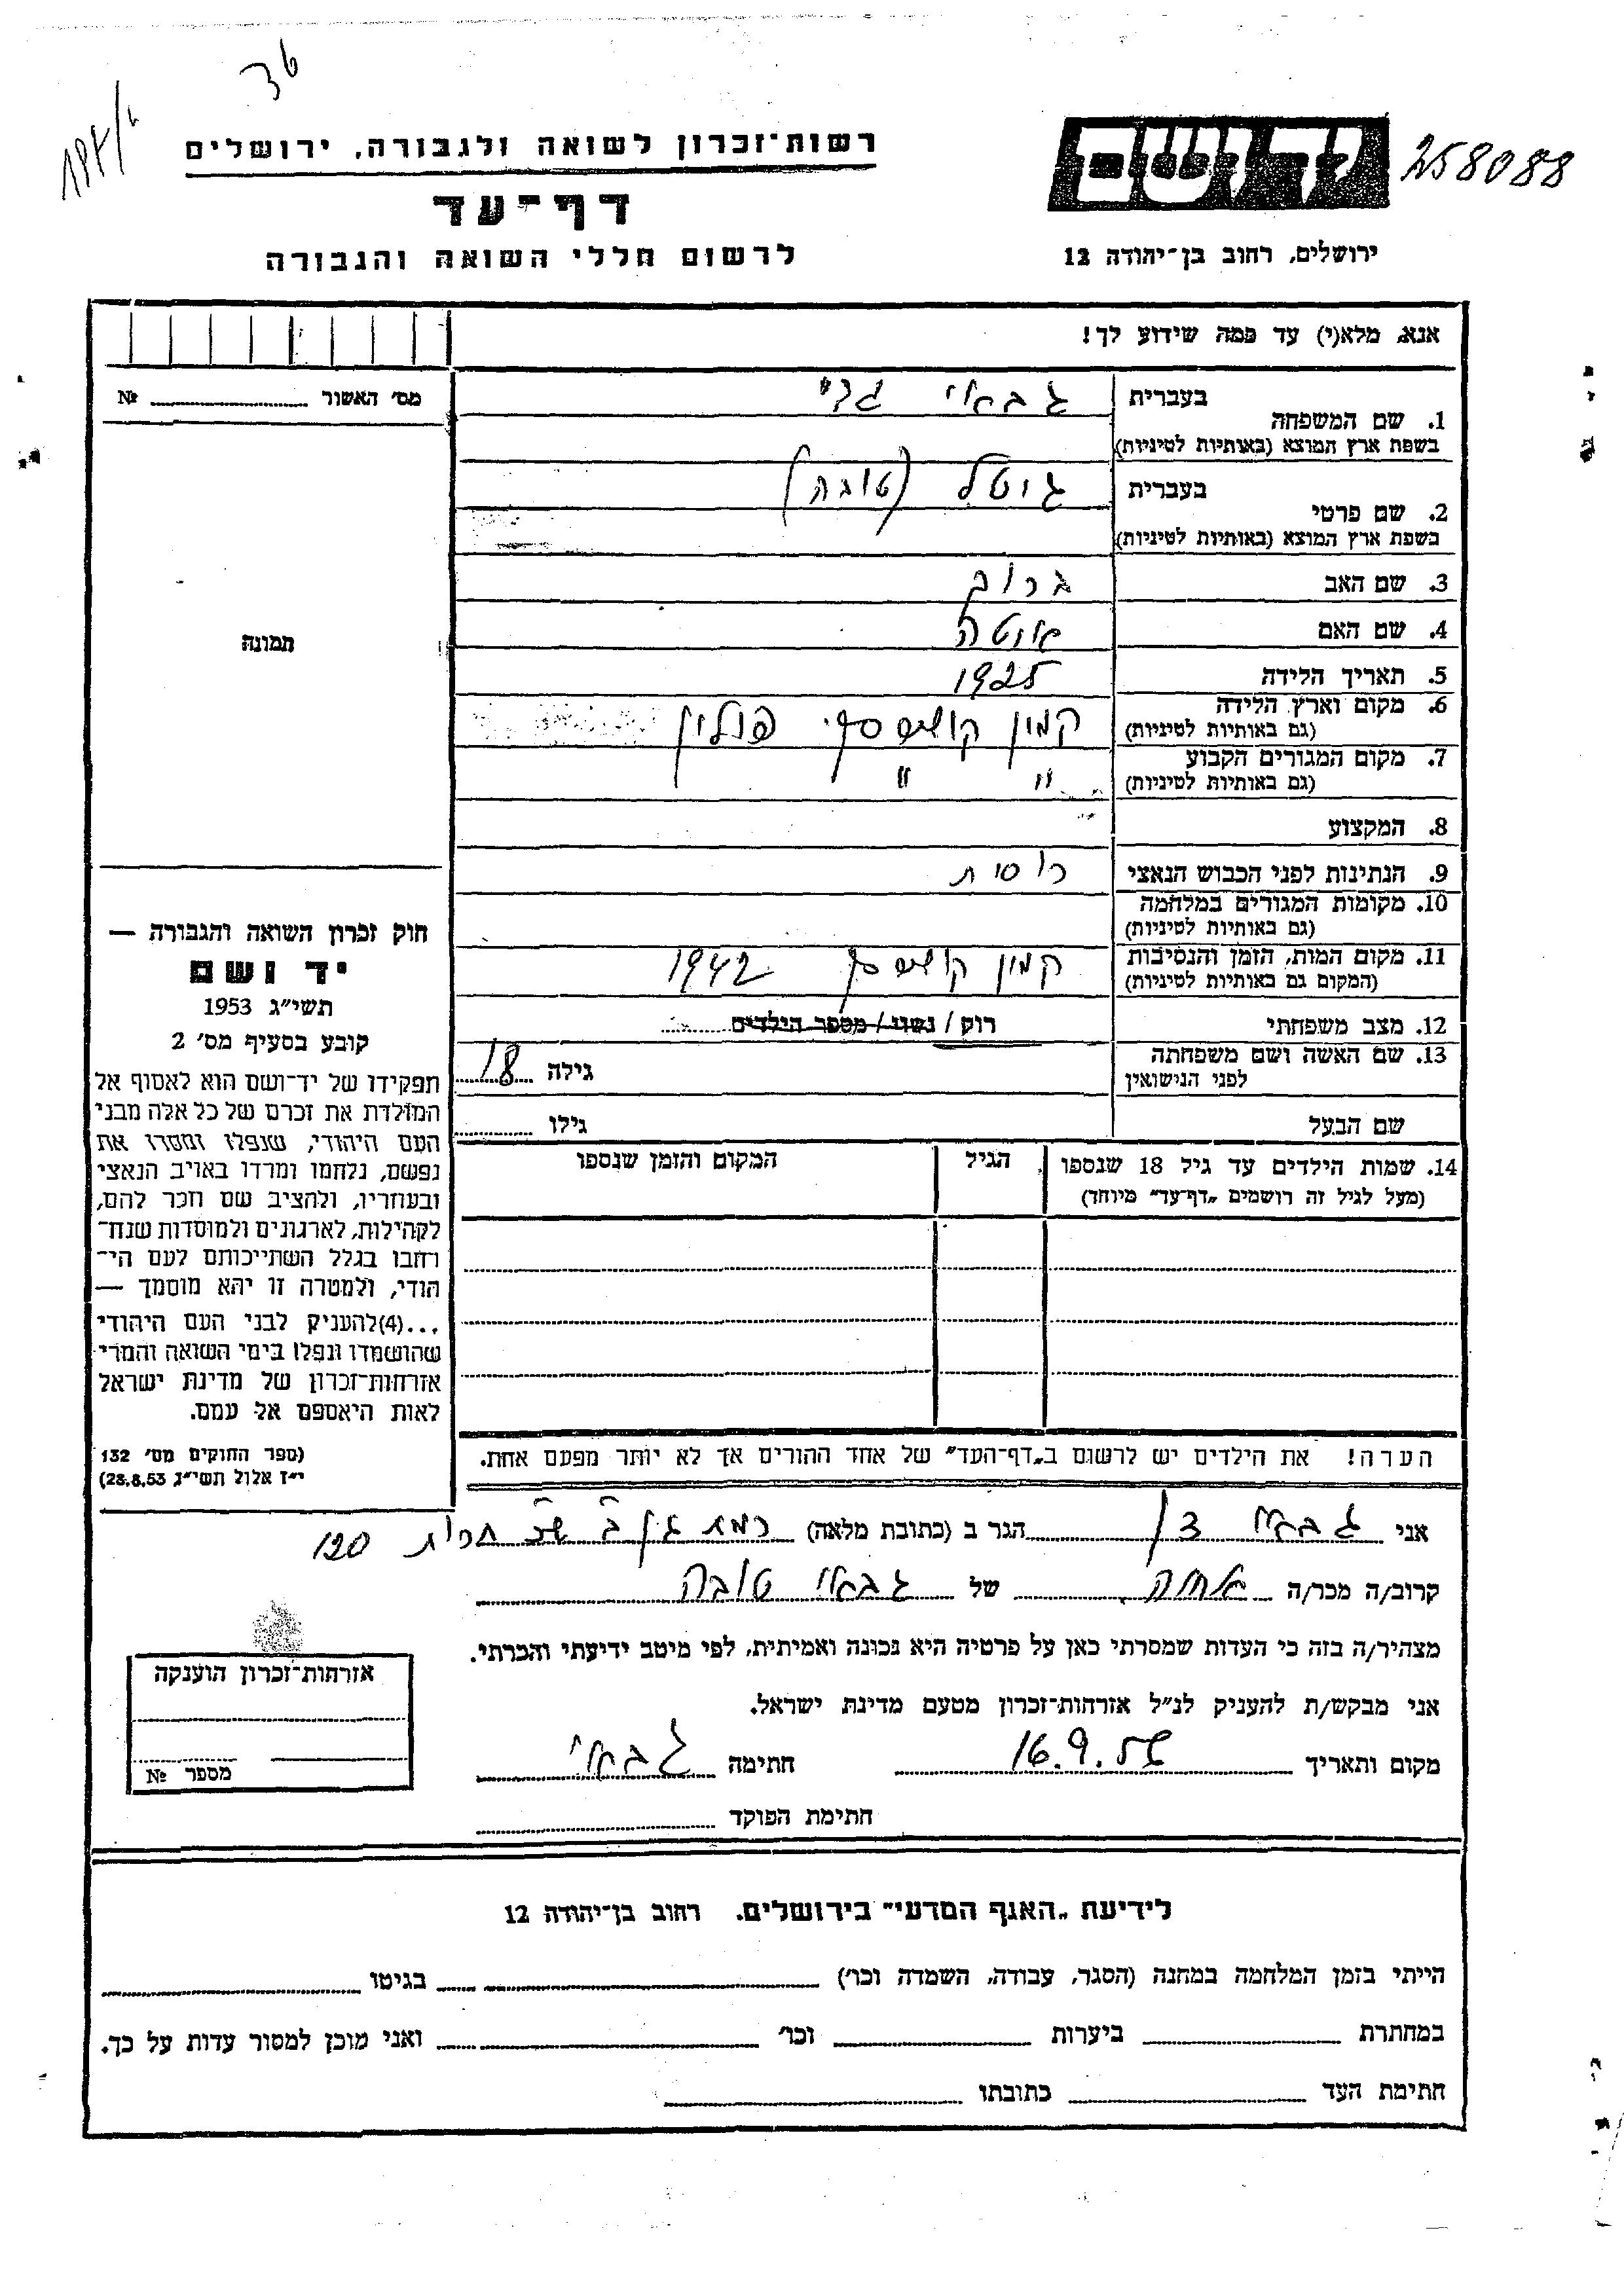 רשות־זכרון לשואה ולגבורה, ירושלים
258088
דף־עד
לרשום חללי השואה והגבורה
ירושלים, רחוב בן־יהודה 12
אנא, מלא(י) עד כמה שידוע לך!
מס׳ האשור № 
בעברית
גבאי
1. שם המשפחה
בשפת ארץ המוצא (באותיות לטיניות)
בעברית
גוטל (טובה)
2. שם פרטי
בשפת ארץ המוצא (באותיות לטיניות)
3. שם האב ברוך
4. שם האם
5. תאריך הלידה 1925
6. מקום וארץ הלידה
(גם באותיות לטיניות)
קמין קושירסקי פולין
7. מקום המגורים הקבוע
(גם באותיות לטיניות)
" "
8. המקצוע
9. הנתינות לפני הכבוש הנאצי רוסית
10. מקומות המגורים במלחמה
(גם באותיות לטיניות)
11. מקום המות, הזמן והנסיבות
(המקום גם באותיות לטיניות)
קמין קושירסקי 1942
12. מצב משפחתי רוק / נשוי / מספר הילדים
13. שם האשה ושם משפחתה
לפני הנישואין
גילה 18
שם הבעל גילו
14. שמות הילדים עד גיל 18 שנספו
(מעל לגיל זה רושמים „דף־עד״ מיוחד)
הגיל
המקום והזמן שנספו
תמונה
חוק זכרון השואה והגבורה —
יד ושם
תשי״ג 1953
קובע בסעיף מס׳ 2
תפקידו של יד־ושם הוא לאסוף אל
המולדת את זכרם של כל אלה מבני
העם היהודי, שנפלו ומסרו את
נפשם, נלחמו ומרדו באויב הנאצי
ובעוזריו, ולהציב שם וזכר להם,
לקהילות, לארגונים ולמוסדות שנח־
רבו בגלל השתייכותם לעם הי־
הודי, ולמטרה זו יהא מוסמך —
...(4) להעניק לבני העם היהודי
שהושמדו ונפלו בימי השואה והמרי
אזרחות־זכרון של מדינת ישראל
לאות היאספם אל עמם.
(ספר החוקים מס׳ 132
י״ז אלול תשי״ג 28.8.53)
הערה! את הילדים יש לרשום ב„דף־העד״ של אחד ההורים אך לא יותר מפעם אחת.
אני גבאי הגר ב (כתובת מלאה) רמת גן 120
קרוב/ה מכר/ה של גבאי טובה
מצהיר/ה בזה כי העדות שמסרתי כאן על פרטיה היא נכונה ואמיתית, לפי מיטב ידיעתי והכרתי.
אני מבקש/ת להעניק לנ״ל אזרחות־זכרון מטעם מדינת ישראל.
מקום ותאריך 16.9. חתימה גבאי
חתימת הפוקד
אזרחות־זכרון הוענקה
מספר №
לידיעת „האגף המדעי״ בירושלים, רחוב בן־יהודה 12
הייתי בזמן המלחמה במחנה (הסגר, עבודה, השמדה וכו׳) בגיטו
במחתרת ביערות וכו׳ ואני מוכן למסור עדות על כך.
חתימת העד כתובתו